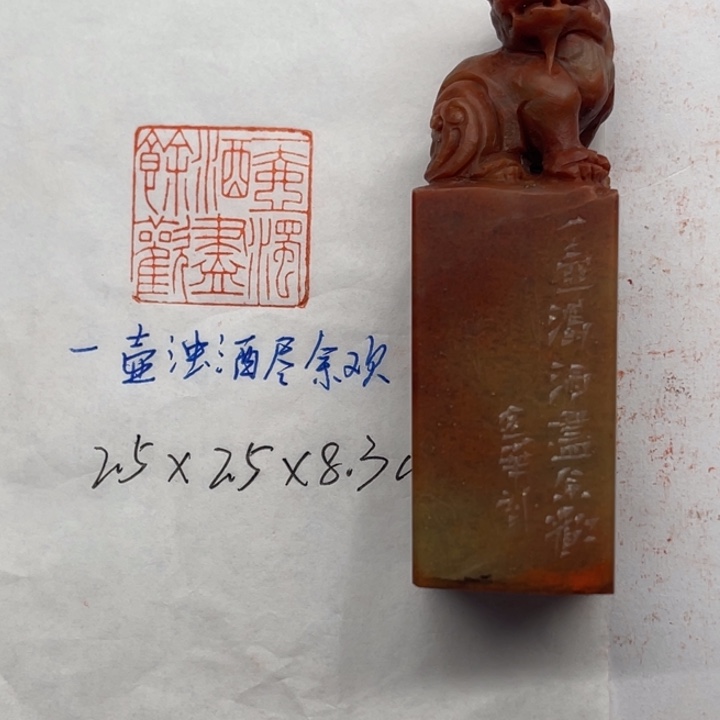 一壺濁
酒盡
餘歡
一壶浊酒尽余欢
2.5×2.5×8.3c
一壺濁酒盡余歡
刻